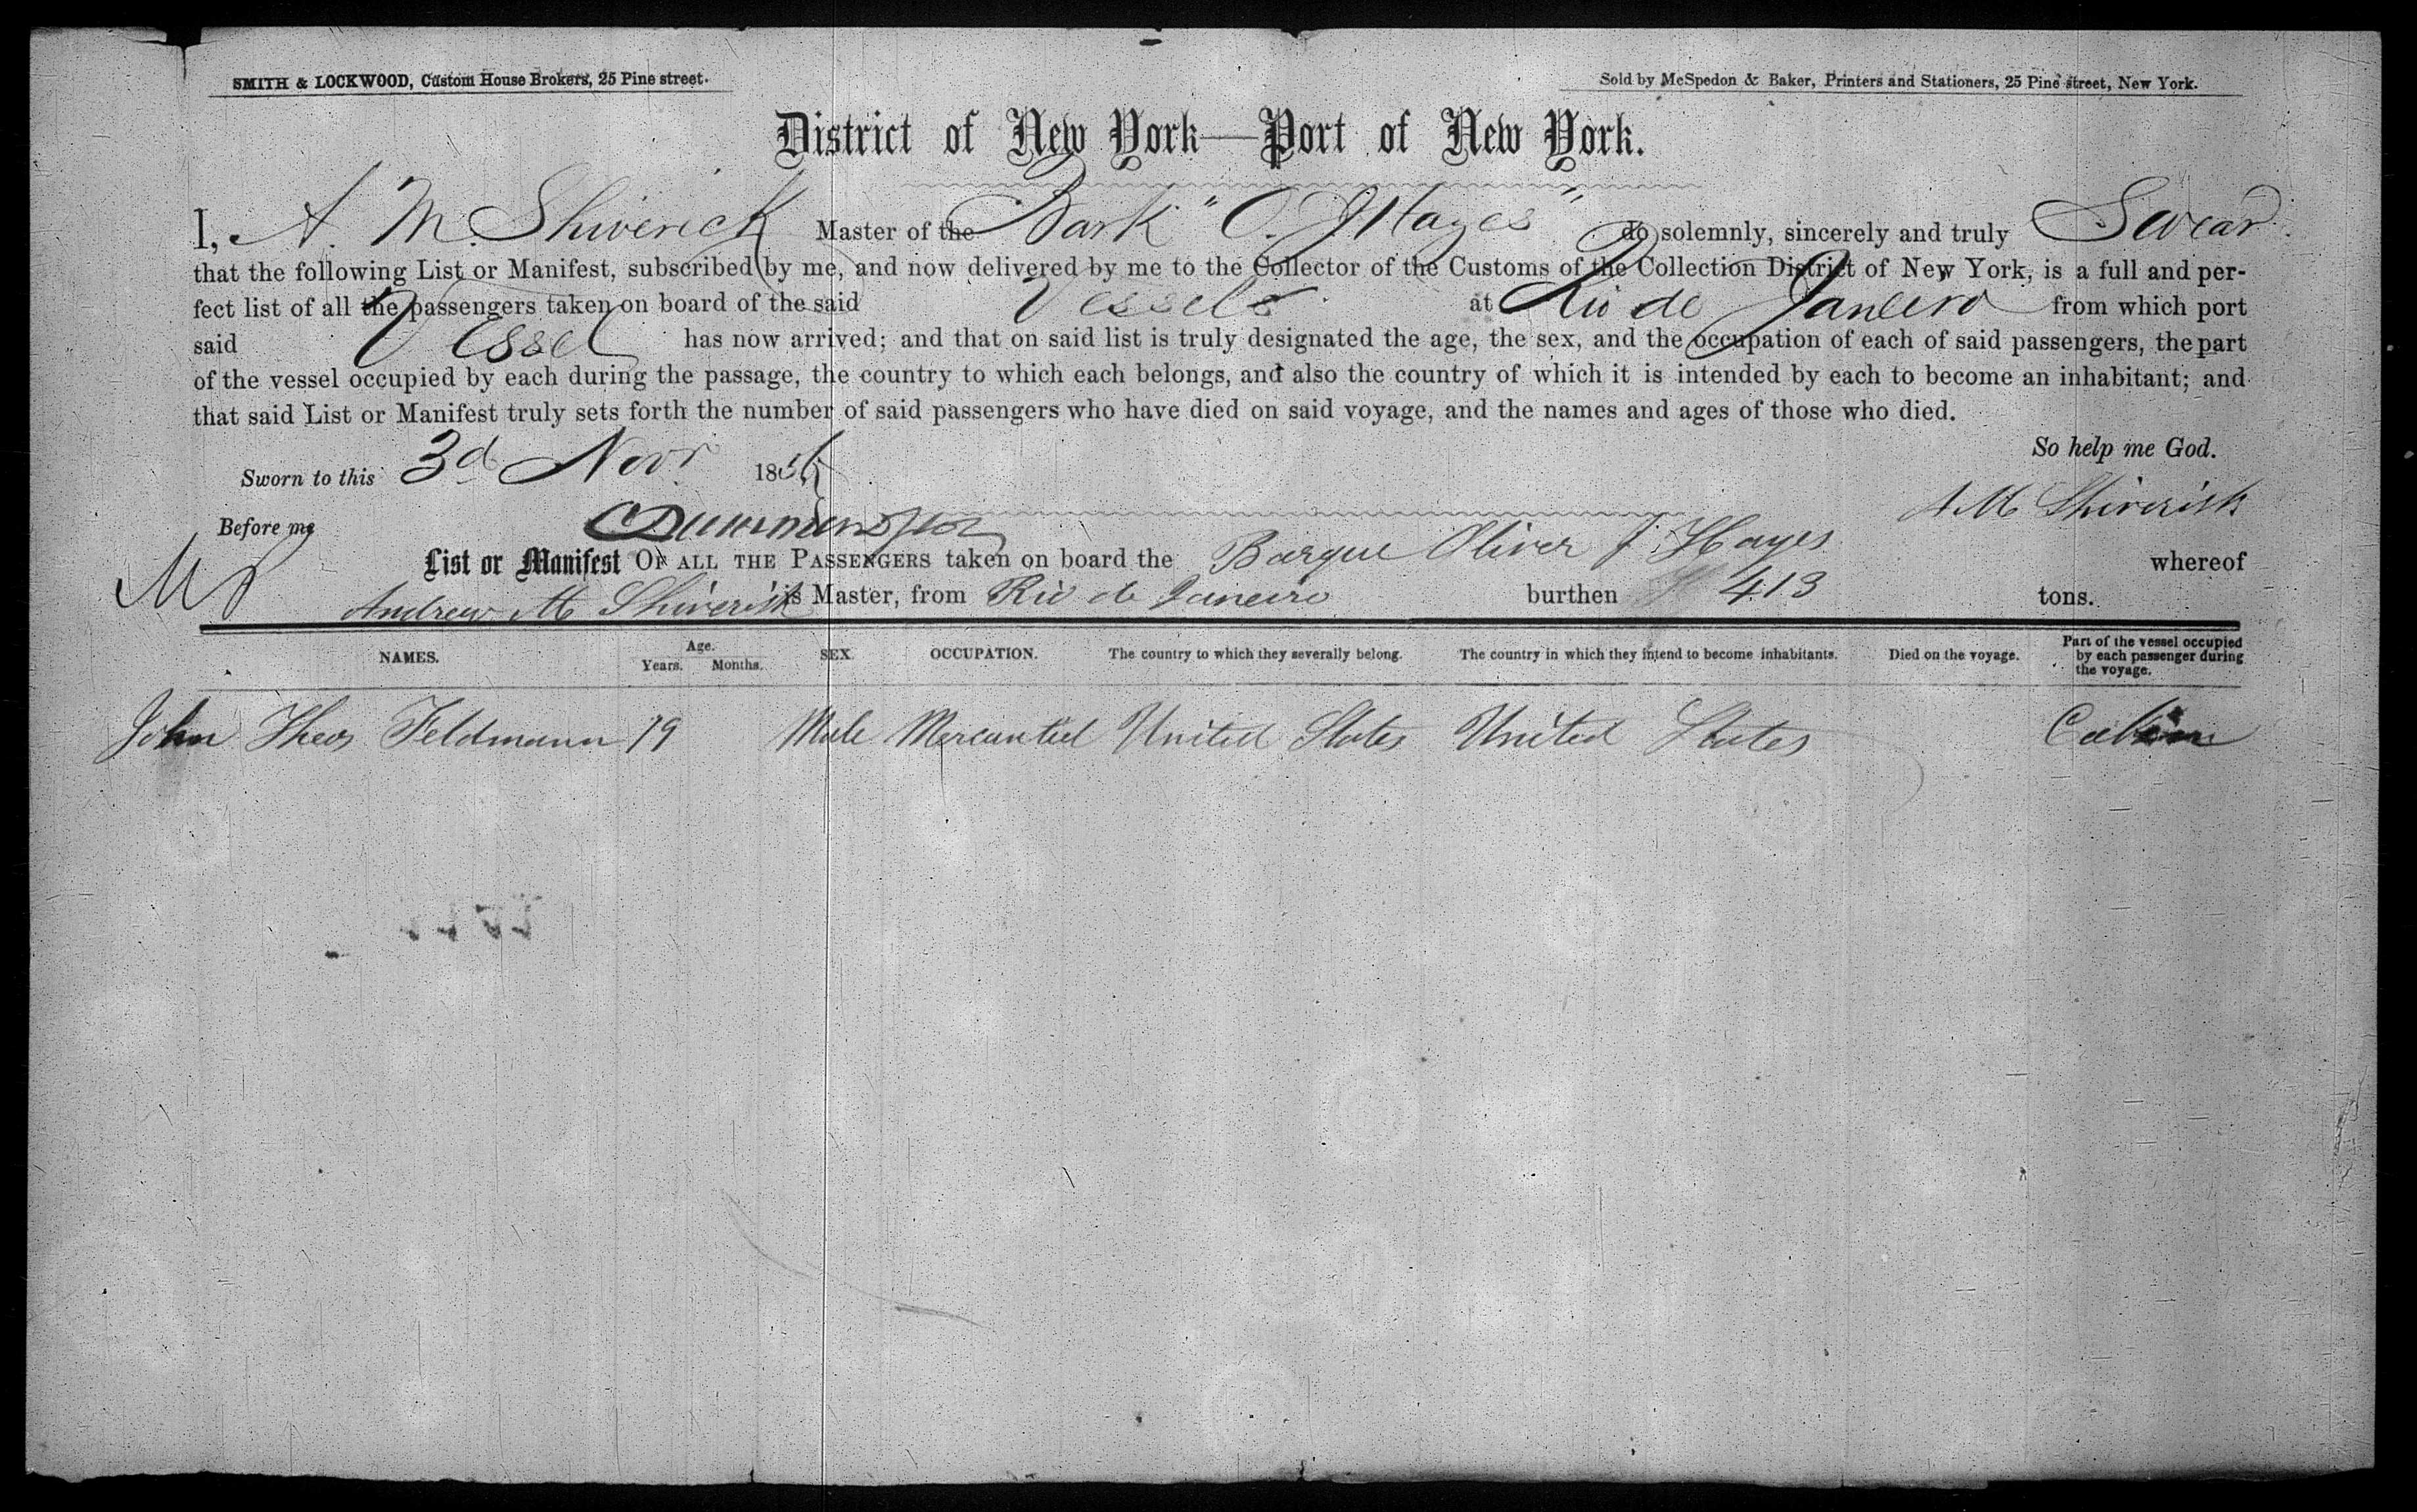 SMITH & LOCKWOOD, Custom House Brokers, 25 Pine street.
Sold by McSpedon & Baker, Printers and Stationers, 25 Pine street, New York.
District of New York—Port of New York.
I, A. M. Shiverick Master of the Bark "O. J. Hayes" do solemnly, sincerely and truly Swear
that the following List or Manifest, subscribed by me, and now delivered by me to the Collector of the Customs of the Collection District of New York, is a full and per-
fect list of all the passengers taken on board of the said Vessels at Rio de Janeiro from which port
said Vessel has now arrived; and that on said list is truly designated the age, the sex, and the occupation of each of said passengers, the part
of the vessel occupied by each during the passage, the country to which each belongs, and also the country of which it is intended by each to become an inhabitant; and
that said List or Manifest truly sets forth the number of said passengers who have died on said voyage, and the names and ages of those who died.
So help me God.
Sworn to this 3d Novr 1856
A M Shiverick
Before me
List or Manifest OF ALL THE PASSENGERS taken on board the Barque Oliver J. Hayes whereof
Andrew M Shiverick is Master, from Rio de Janeiro burthen 413 tons.
NAMES. Age. Years. Months. SEX. OCCUPATION. The country to which they severally belong. The country in which they intend to become inhabitants. Died on the voyage. Part of the vessel occupied by each passenger during the voyage.
John Theos Feldmann 19 Male Mercantiel United States United States Cabin